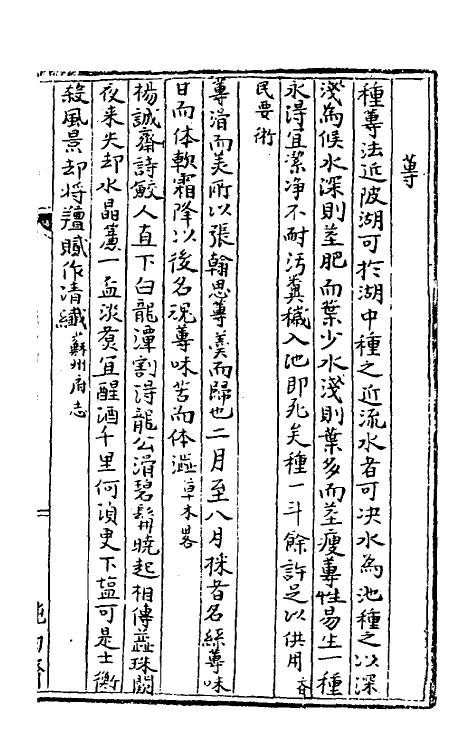 蓴
種蓴法近陂湖可扵湖中種之近流水者可决水為池種之以深
淺為候水深則莖肥而葉少水淺則葉多而莖瘦蓴性易生一種
永得宜潔净不耐汚糞穢入池即死矣種一斗餘許足以供用齊
民要術
蓴滑而美所以張翰思蓴羮而歸也二月至八月採者名絲蓴味
甘而体軟霜降以後名瑰蓴味苦而体澁草木畧
楊誠齋詩鮫人直下白龍潭割得龍公滑碧髯曉起相傳蘂珠闕
夜来失却水晶簾一盃淡煑宜醒酒千里何湏更下塩可是士衡
殺風景却將羶膩作清纎蘇州府志